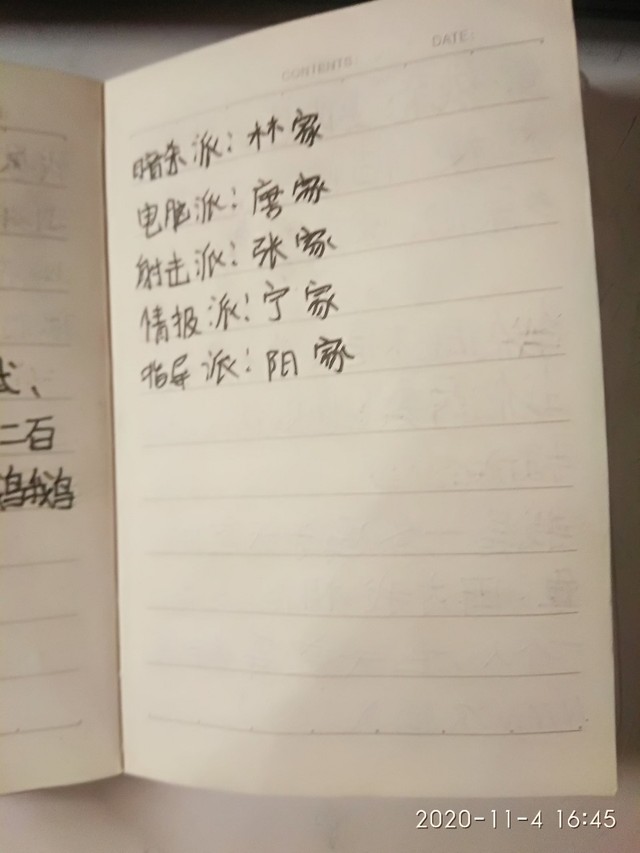 CONTENTS
DATE:
暗杀派：林家
电脑派：唐家
射击派：张家
情报派：宁家
指导派：阳家
二百
2020-11-4 16:45